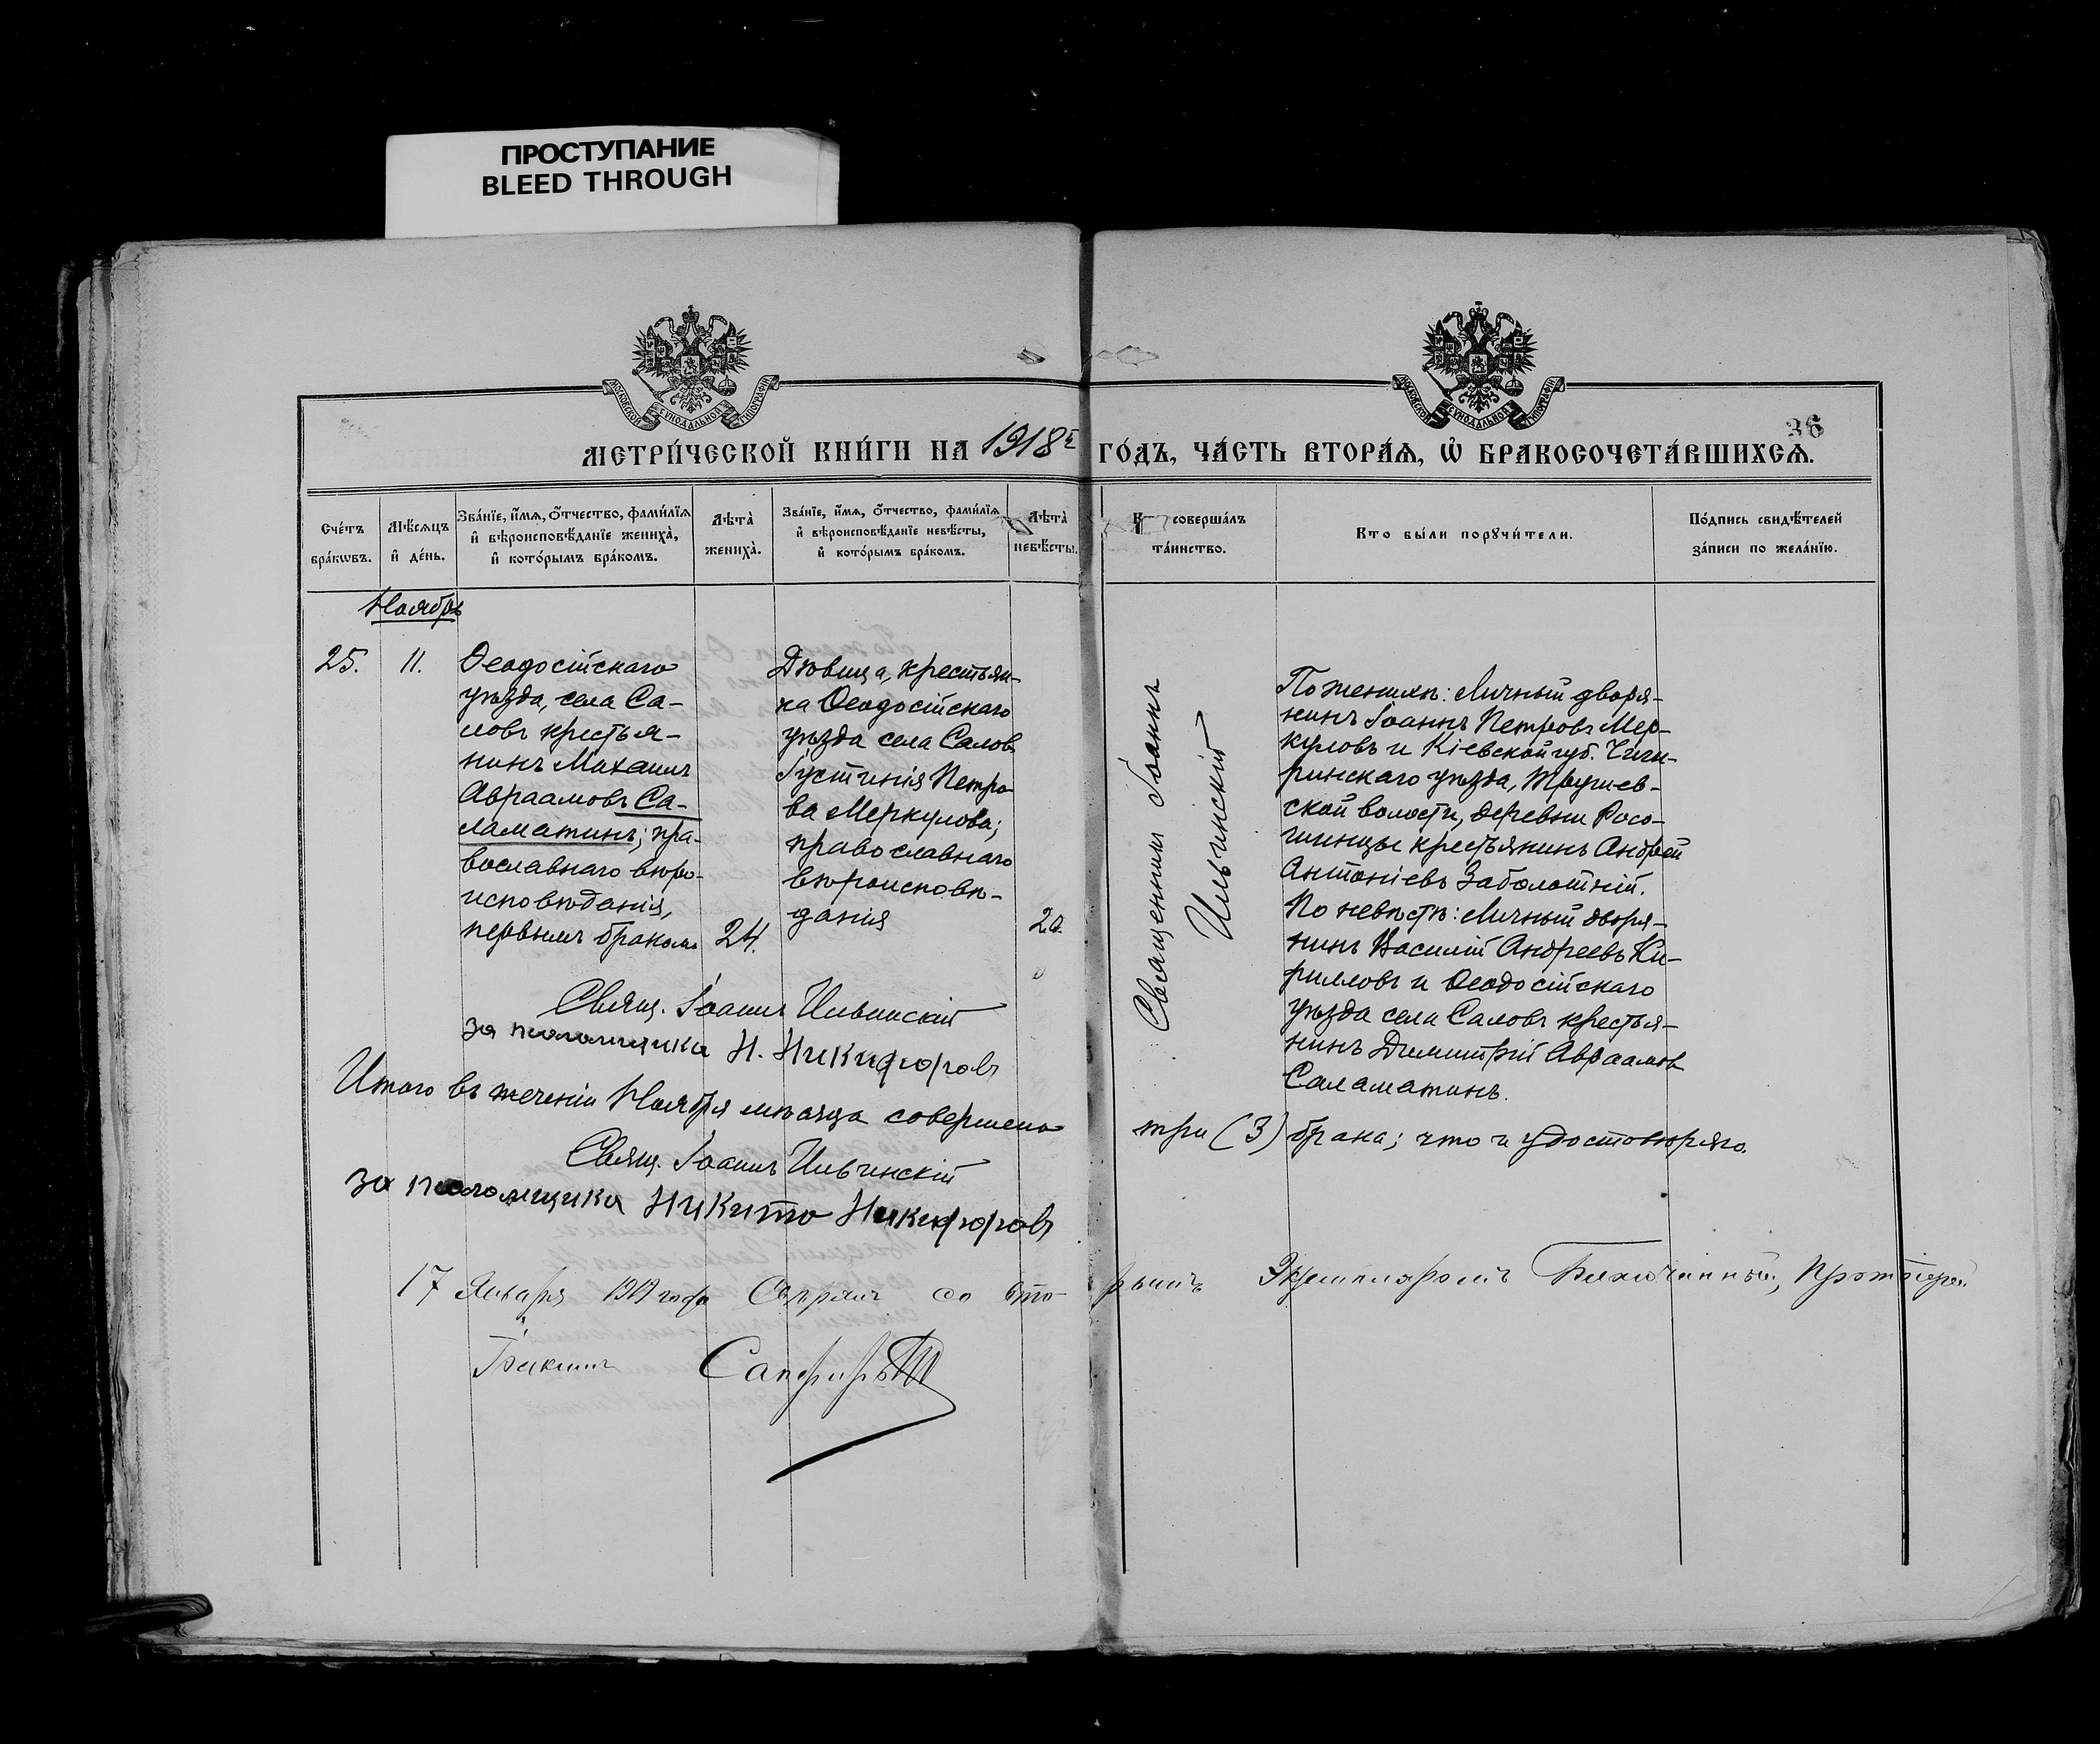 ПРОСТУПАНИЕ
BLEED THROUGH
МОСКОВСКОЙ СѴНОДАЛЬНОЙ ТИПОГРАФІИ
МОСКОВСКОЙ СѴНОДАЛЬНОЙ ТИПОГРАФІИ
36
МЕТРИ́ЧЕСКОЙ КНИ́ГИ НА 1918й ГО́ДЪ, ЧА́СТЬ ВТОРА́Ѧ, Ѽ БРАКОСОЧЕТА́ВШИХСѦ.
Сче́тъ бра́кѡвъ.
Мѣ́сѧцъ и҆ де́нь.
Зва́нїе, и҆́мѧ, ѻ҆́тчество, фами́лїѧ
и҆ вѣроисповѣ́данїе жениха̀,
и҆ кото́рымъ бра́комъ.
Лѣта̀ жениха̀.
Зва́нїе, и҆́мѧ, ѻ҆́тчество, фами́лїѧ
и҆ вѣроисповѣ́данїе невѣ́сты,
и҆ кото́рымъ бра́комъ.
Лѣта̀ невѣ́сты.
соверша́лъ
та́инство.
Кто бы́ли порꙋчи́тели.
По́дпись свидѣ́телей
за́писи по жела́нїю.
Ноябрь
25.
11.
Ѳеодосійскаго
уѣзда, села Са-
ловъ крестья-
нинъ Михаилъ
Авраамовъ Са-
ламатинъ; пра-
вославнаго вѣро-
исповѣданія,
первымъ бракомъ
24.
Дѣвица, крестьян-
ка Ѳеодосійскаго
уѣзда села Саловъ
Іустинія Петро-
ва Меркулова;
православнаго
вѣроисповѣ-
данія
20.
Священникъ Іоаннъ
Ильчинскій
По женихѣ: Личный дворя-
нинъ Іоаннъ Петровъ Мер-
куловъ и Кіевской губ. Чиги-
ринскаго уѣзда,
ской волости, деревни Росо-
шинцы крестьянинъ Андрей
Антоніевъ Заболотній.
По невѣстѣ: Личный дворя-
нинъ Василій Андреевъ Ки-
рилловъ и Ѳеодосійскаго
уѣзда села Саловъ крестья-
нинъ Димитрій Авраамовъ
Саламатинъ.
Свящ. Іоаннъ Ильчинскій
за псаломщика Н. Никифоровъ
Итого въ теченіи Ноября мѣсяца совершено три (3) брака; что и удостовѣряю.
Свящ. Іоаннъ Ильчинскій
за псаломщика Никита Никифоровъ
17 Января 1919 года Свѣрялъ со вторымъ Экземпляромъ Благочинный, Протоіерей